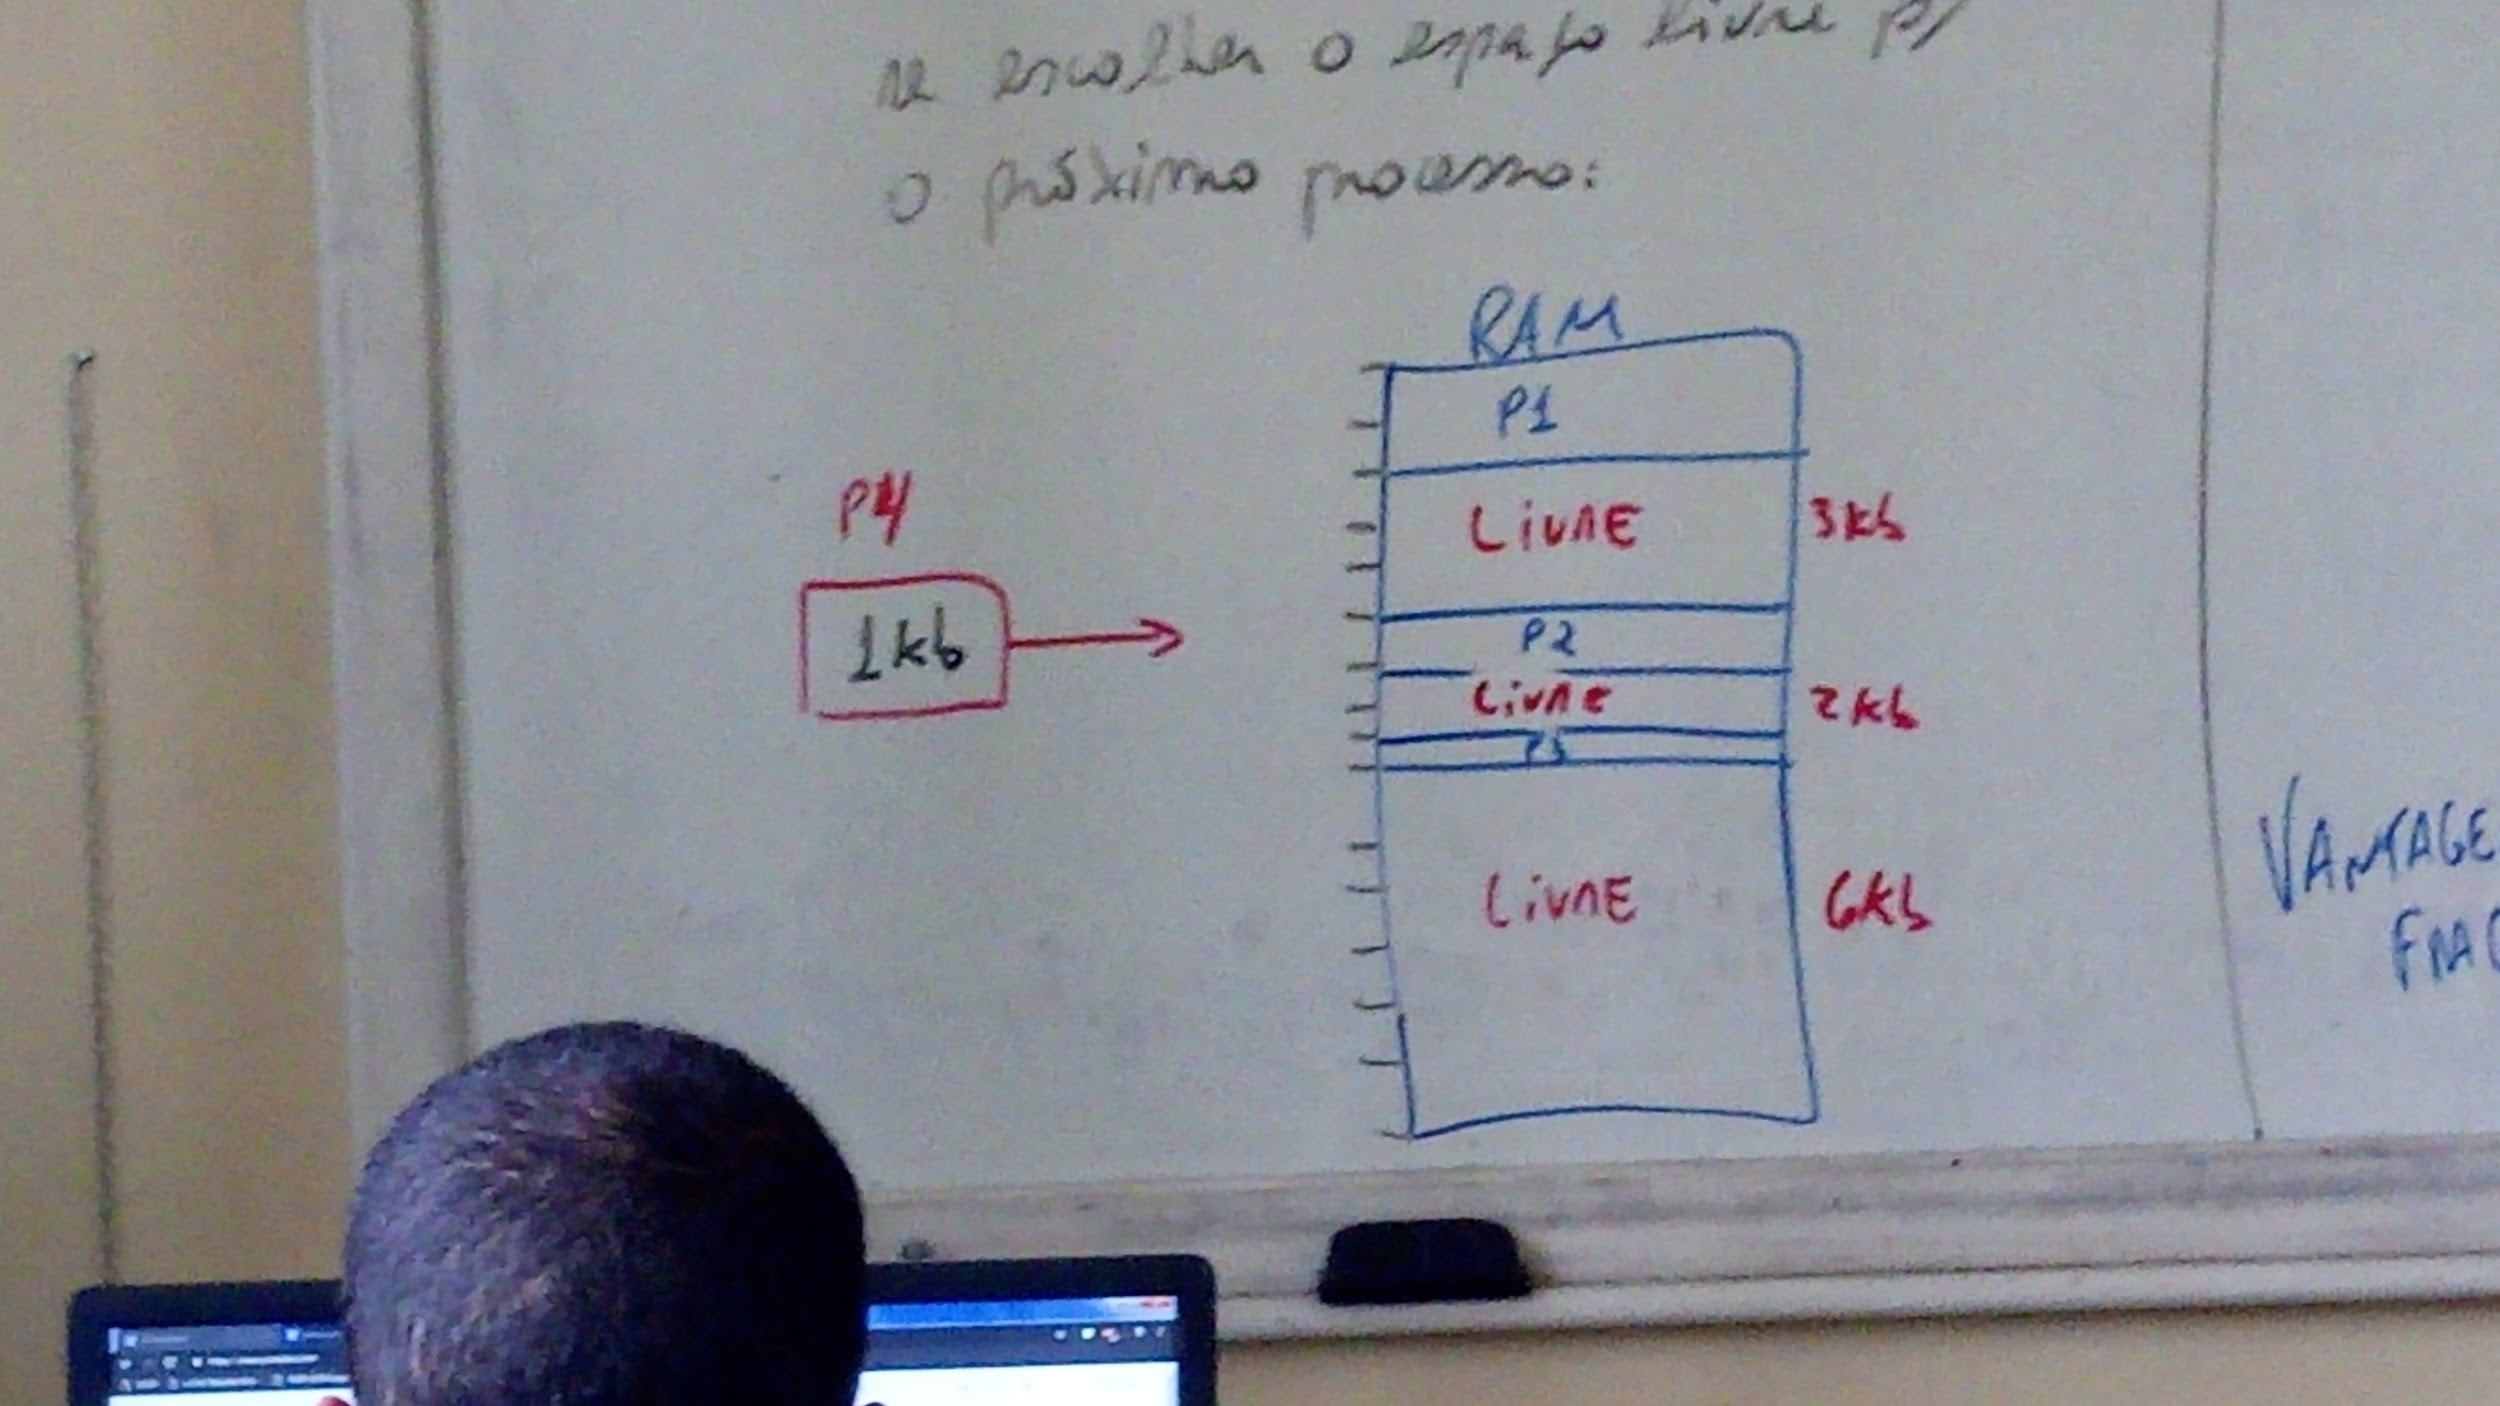 se escolher o espaço livre p/
o próximo processo:
RAM
P1
P4
LivRE
3kb
1kb
P2
LivRE
2kb
P3
LivRE
6kb
VANTAGE
FRAG